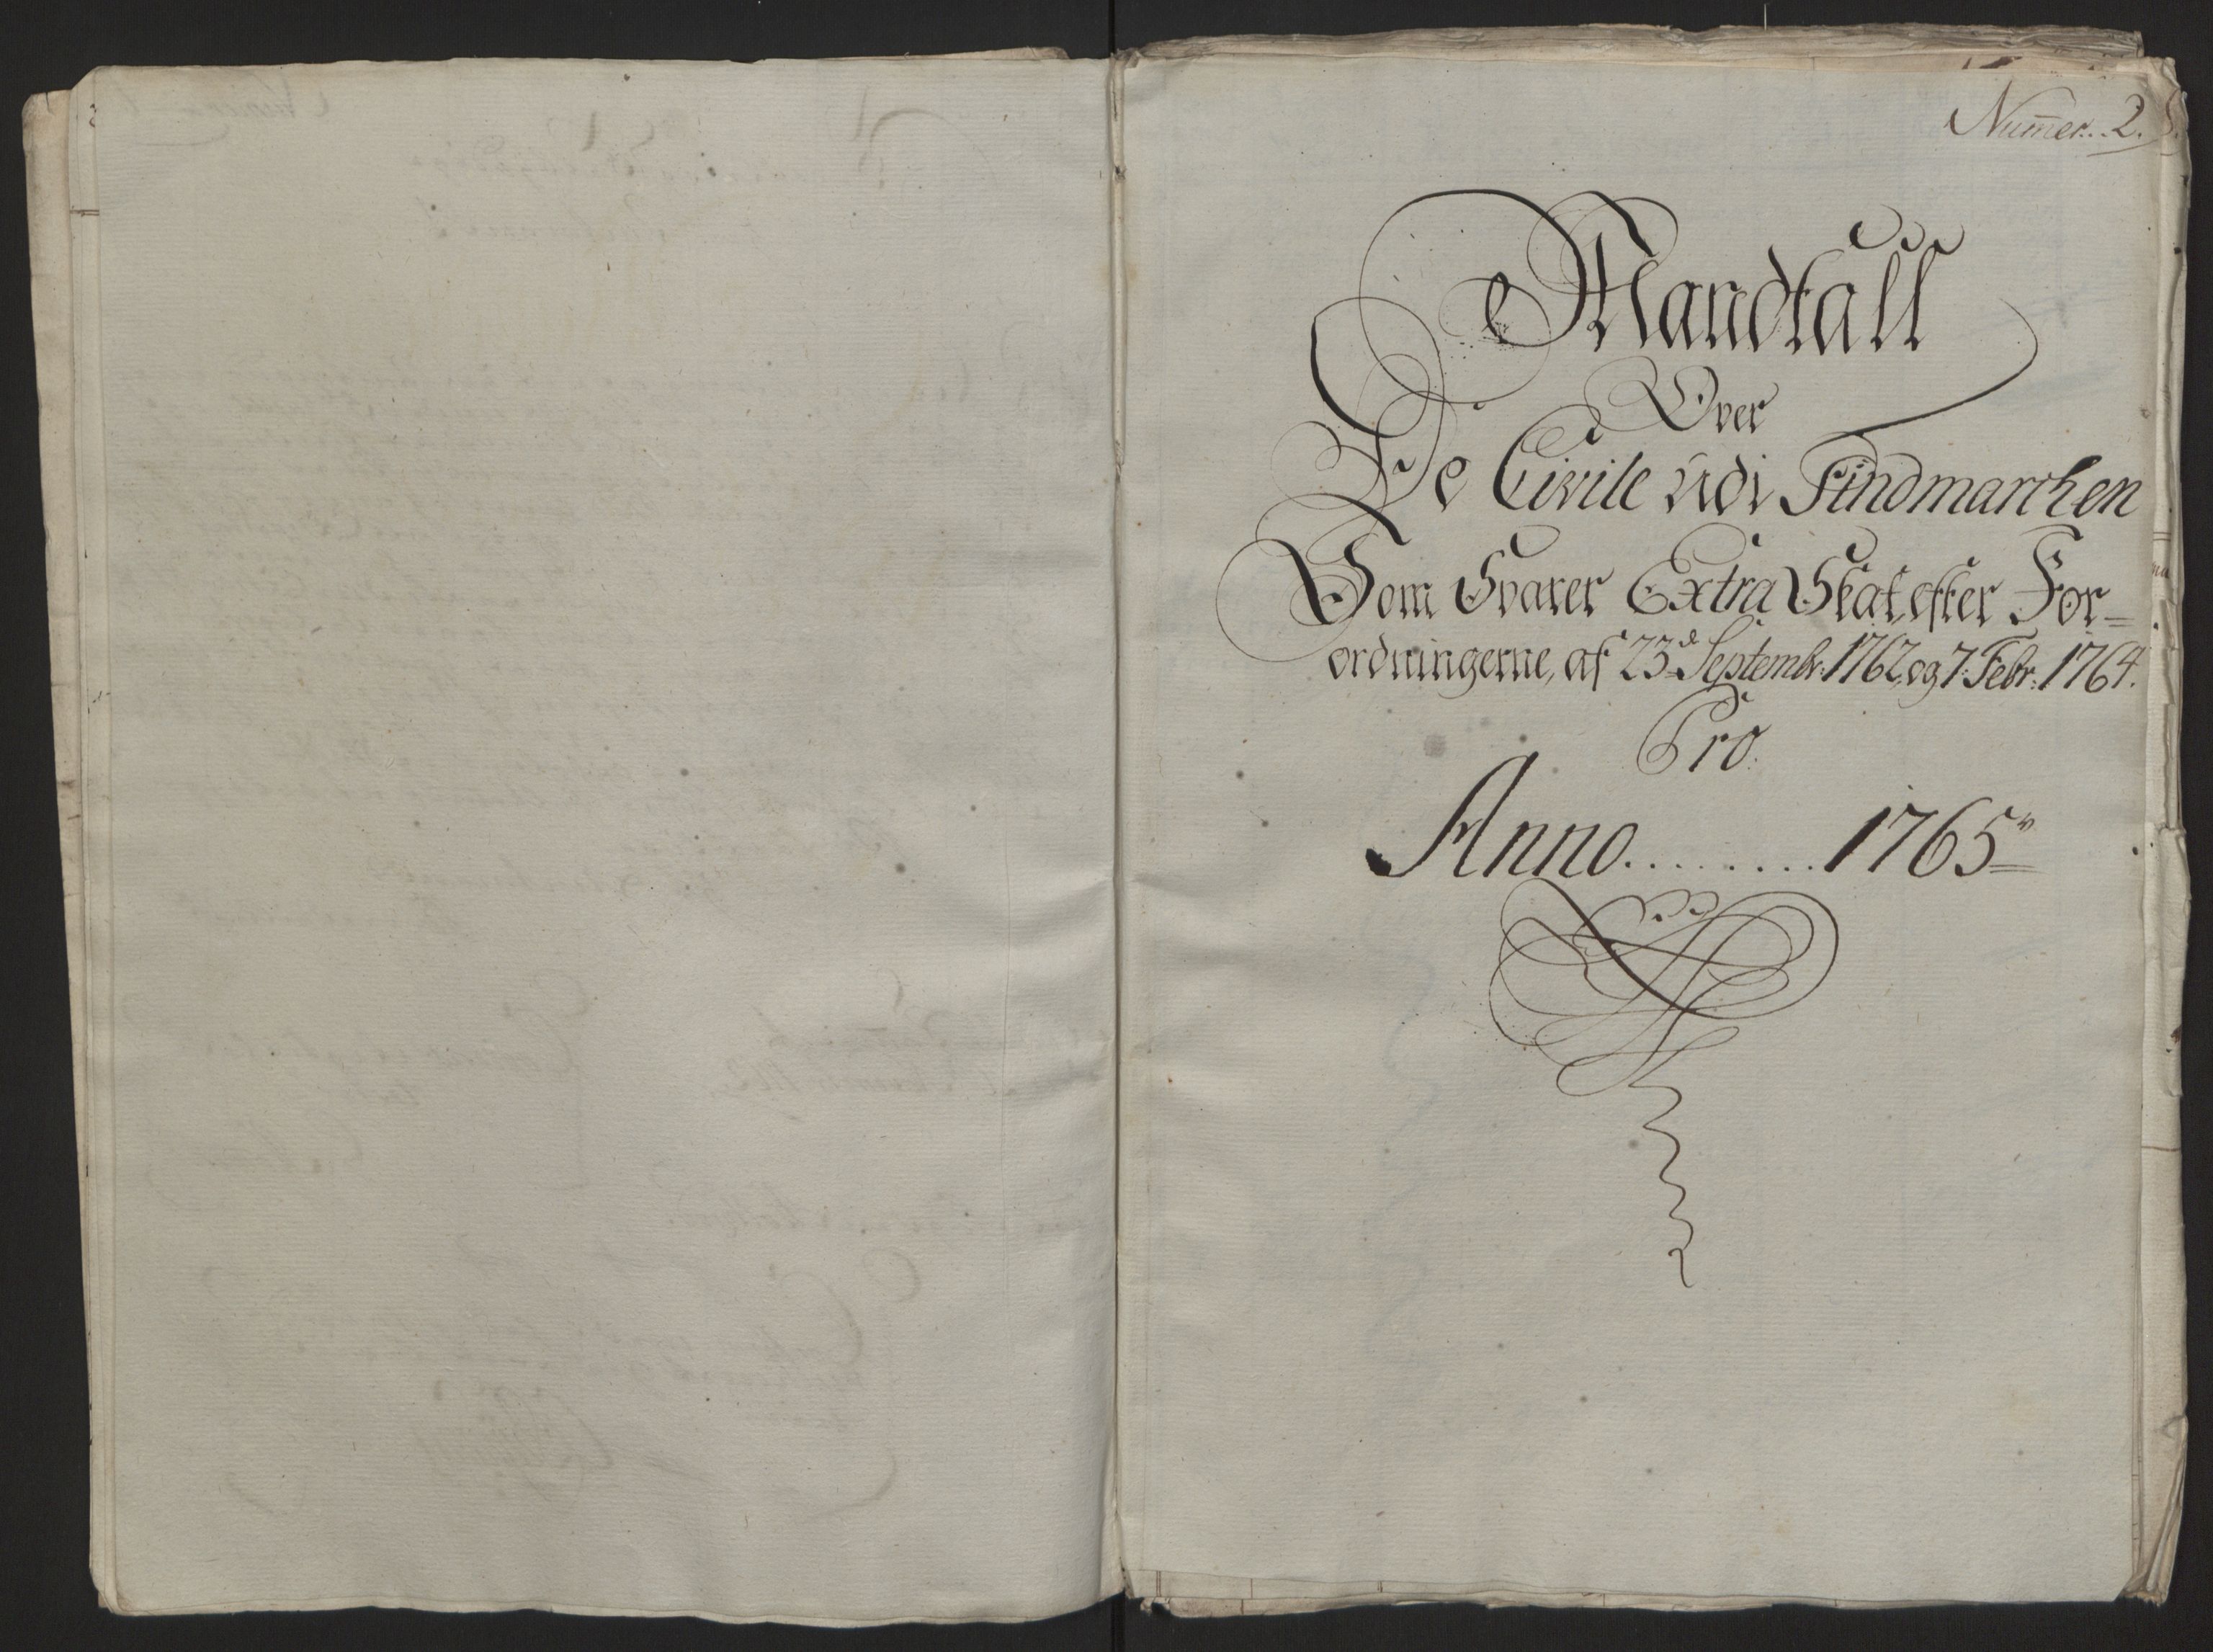 Num̄er. 2.
Mandtall
Over
De Civile udi Findmarchen
Som Svarer Extra Skat, efter For=
ordningerne, af 23de Septembr: 1762, og 7. Febr: 1764.
Pro.
Anno........1765